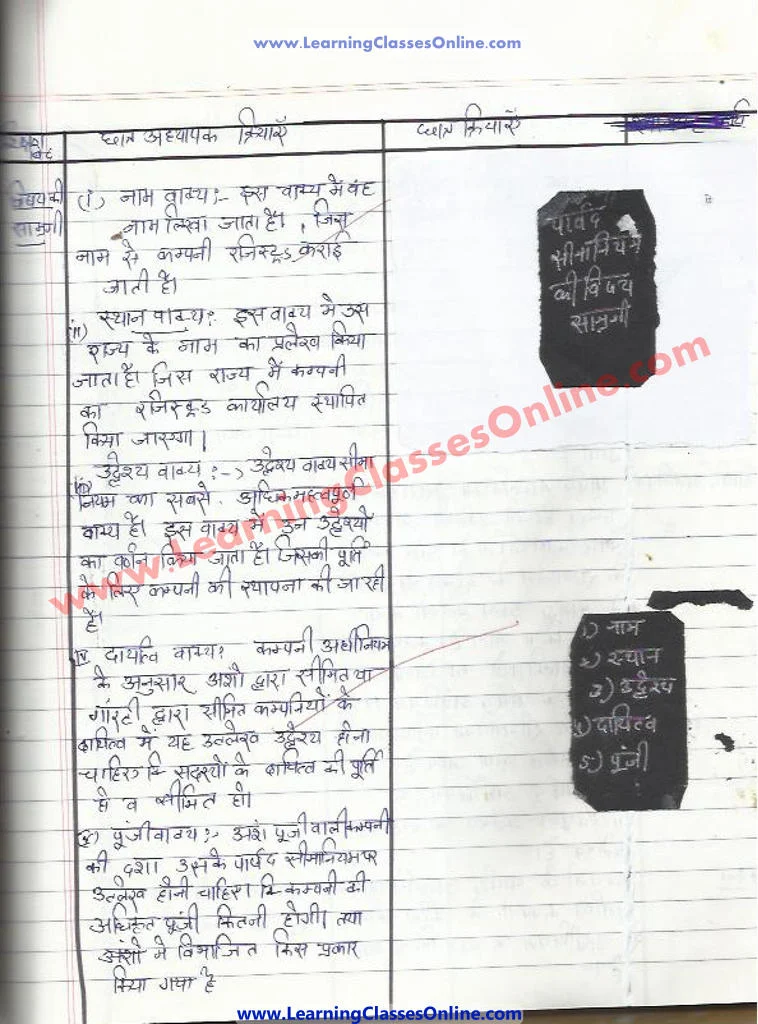 www.LearningClassesOnline.com
छात्र अध्यापक क्रियाएँ
छात्र क्रियाएँ
विषय की
सामग्री
(i) नाम वाक्य :- इस वाक्य में वह
नाम लिखा जाता है। , जिस
नाम से कम्पनी रजिस्ट्रड कराई
जाती है।
(ii) स्थान वाक्य : इस वाक्य मे उस
राज्य के नाम का प्रलेख किया
जाता है। जिस राज्य में कम्पनी
का रजिस्ट्रड कार्यालय स्थापित
किया जाएगा।
(iii) उद्देश्य वाक्य :-> उद्देश्य वाक्य सीमा
नियम का सबसे अधिक महत्वपूर्ण
वाक्य है। इस वाक्य में उन उद्देश्यों
का वर्णन किया जाता है। जिसकी पूर्ति
के लिए कम्पनी की स्थापना की जा रही
है।
IV दायित्व वाक्य : कम्पनी अधीनियम
के अनुसार अंशो द्वारा सीमित या
गारंटी द्वारा सीमित कम्पनियों के
दायित्व में यह उल्लेख उद्देश्य होना
चाहिए कि सदस्यो के दायित्व की पूर्ति
हो व सीमित हो।
पूंजी वाक्य :- अंश पूंजी वाली कम्पनी
की दशा उसके पार्षद सीमानियम पर
उल्लेख होनी चाहिए। कि कम्पनी की
अधिकृत पूंजी कितनी होगी। तथा
अंशो मे विभाजित किस प्रकार
किया गया है
पार्षद
सीमानियम
की विषय
सामग्री
1) नाम
2) स्थान
3) उद्देश्य
4) दायित्व
5) पूंजी
www.LearningClassesOnline.com
www.LearningClassesOnline.com